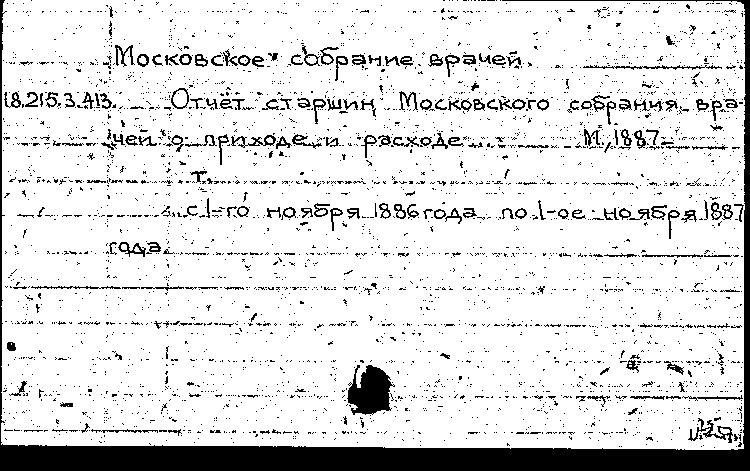 Московское собрание врачей.
18.215.3.413. Отчёт старшин Московского собрания вра-
чей о приходе и расходе ... М., 1887-
т.
с 1-го ноября 1886 года по 1-ое ноября 1887
года.